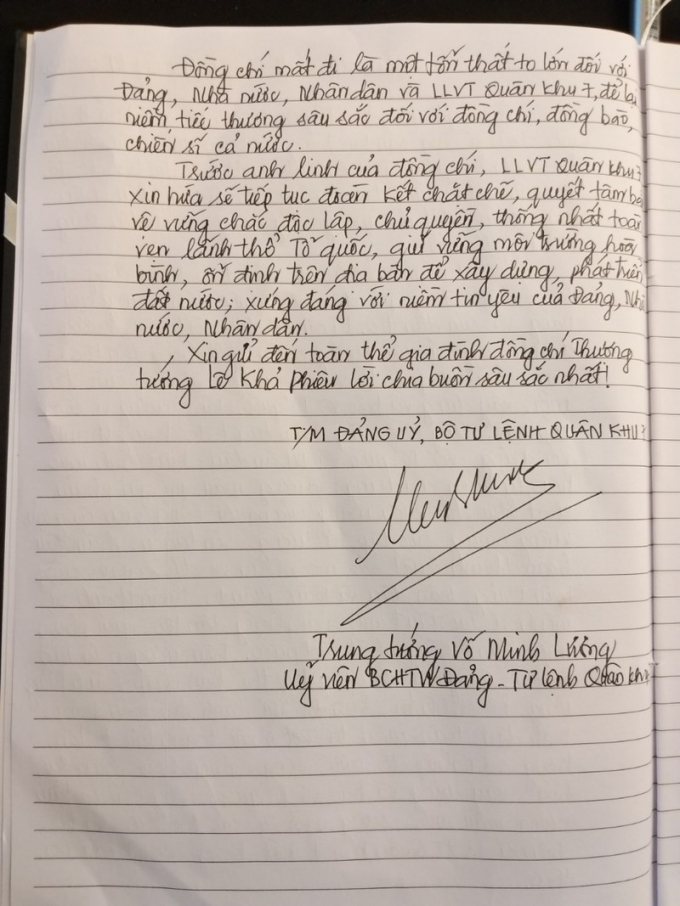 Đồng chí mất đi là một tổn thất to lớn đối với
Đảng, Nhà nước, Nhân dân và LLVT Quân khu 7, để lại
niềm tiếc thương sâu sắc đối với đồng chí, đồng bào,
chiến sĩ cả nước.
Trước anh linh của đồng chí, LLVT Quân khu 7
xin hứa sẽ tiếp tục đoàn kết chặt chẽ, quyết tâm bả
vệ vững chắc độc lập, chủ quyền, thống nhất toàn
vẹn lãnh thổ Tổ quốc, giữ vững môi trường hòa
bình, ổn định trên địa bàn để xây dựng, phát triển
đất nước; xứng đáng với niềm tin yêu của Đảng, Nhà
nước, Nhân dân.
Xin gửi đến toàn thể gia đình đồng chí Thượng
tướng Lê Khả Phiêu lời chia buồn sâu sắc nhất!
T/M ĐẢNG UỶ, BỘ TƯ LỆNH QUÂN KHU 7
Trung tướng Võ Minh Lương
Uỷ viên BCHTW Đảng - Tư lệnh Quân khu